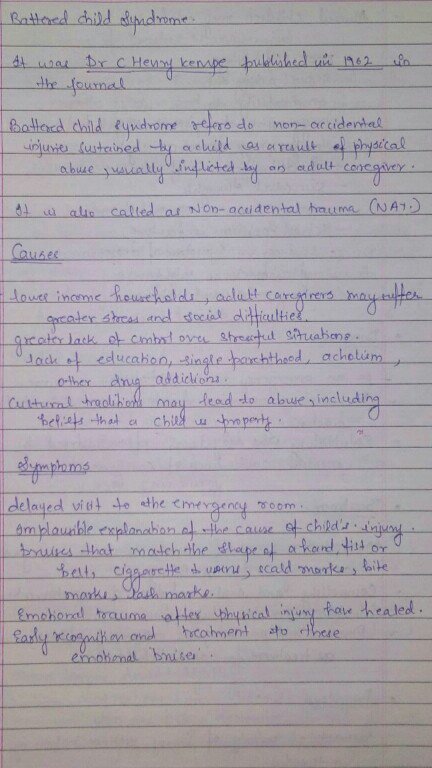 Battered child Syndrome.
It was Dr C Henry kempe published in 1962 in
the Journal
Battered child syndrome refers to non-accidental
injuries sustained by a child as a result of physical
abuse, usually inflicted by an adult caregiver.
It is also called as Non-accidental trauma (NAT.)
Causes
lower income households, adult caregivers may suffer
greater stress and social difficulties.
greater lack of control over stressful situations.
lack of education, single parenthood, acholism,
other drug addictions.
Cultural traditions may lead to abuse, including
beliefs that a child is property.
Symptoms
delayed visit to the emergency room.
implausible explanation of the cause of child's injury.
bruises that match the shape of a hand, fist or
belt, ciggarette burns, scald marks, bite
marks, lash marks.
Emotional trauma after physical injury have healed.
Early recognition and treatment to these
emotional 'bruises'.